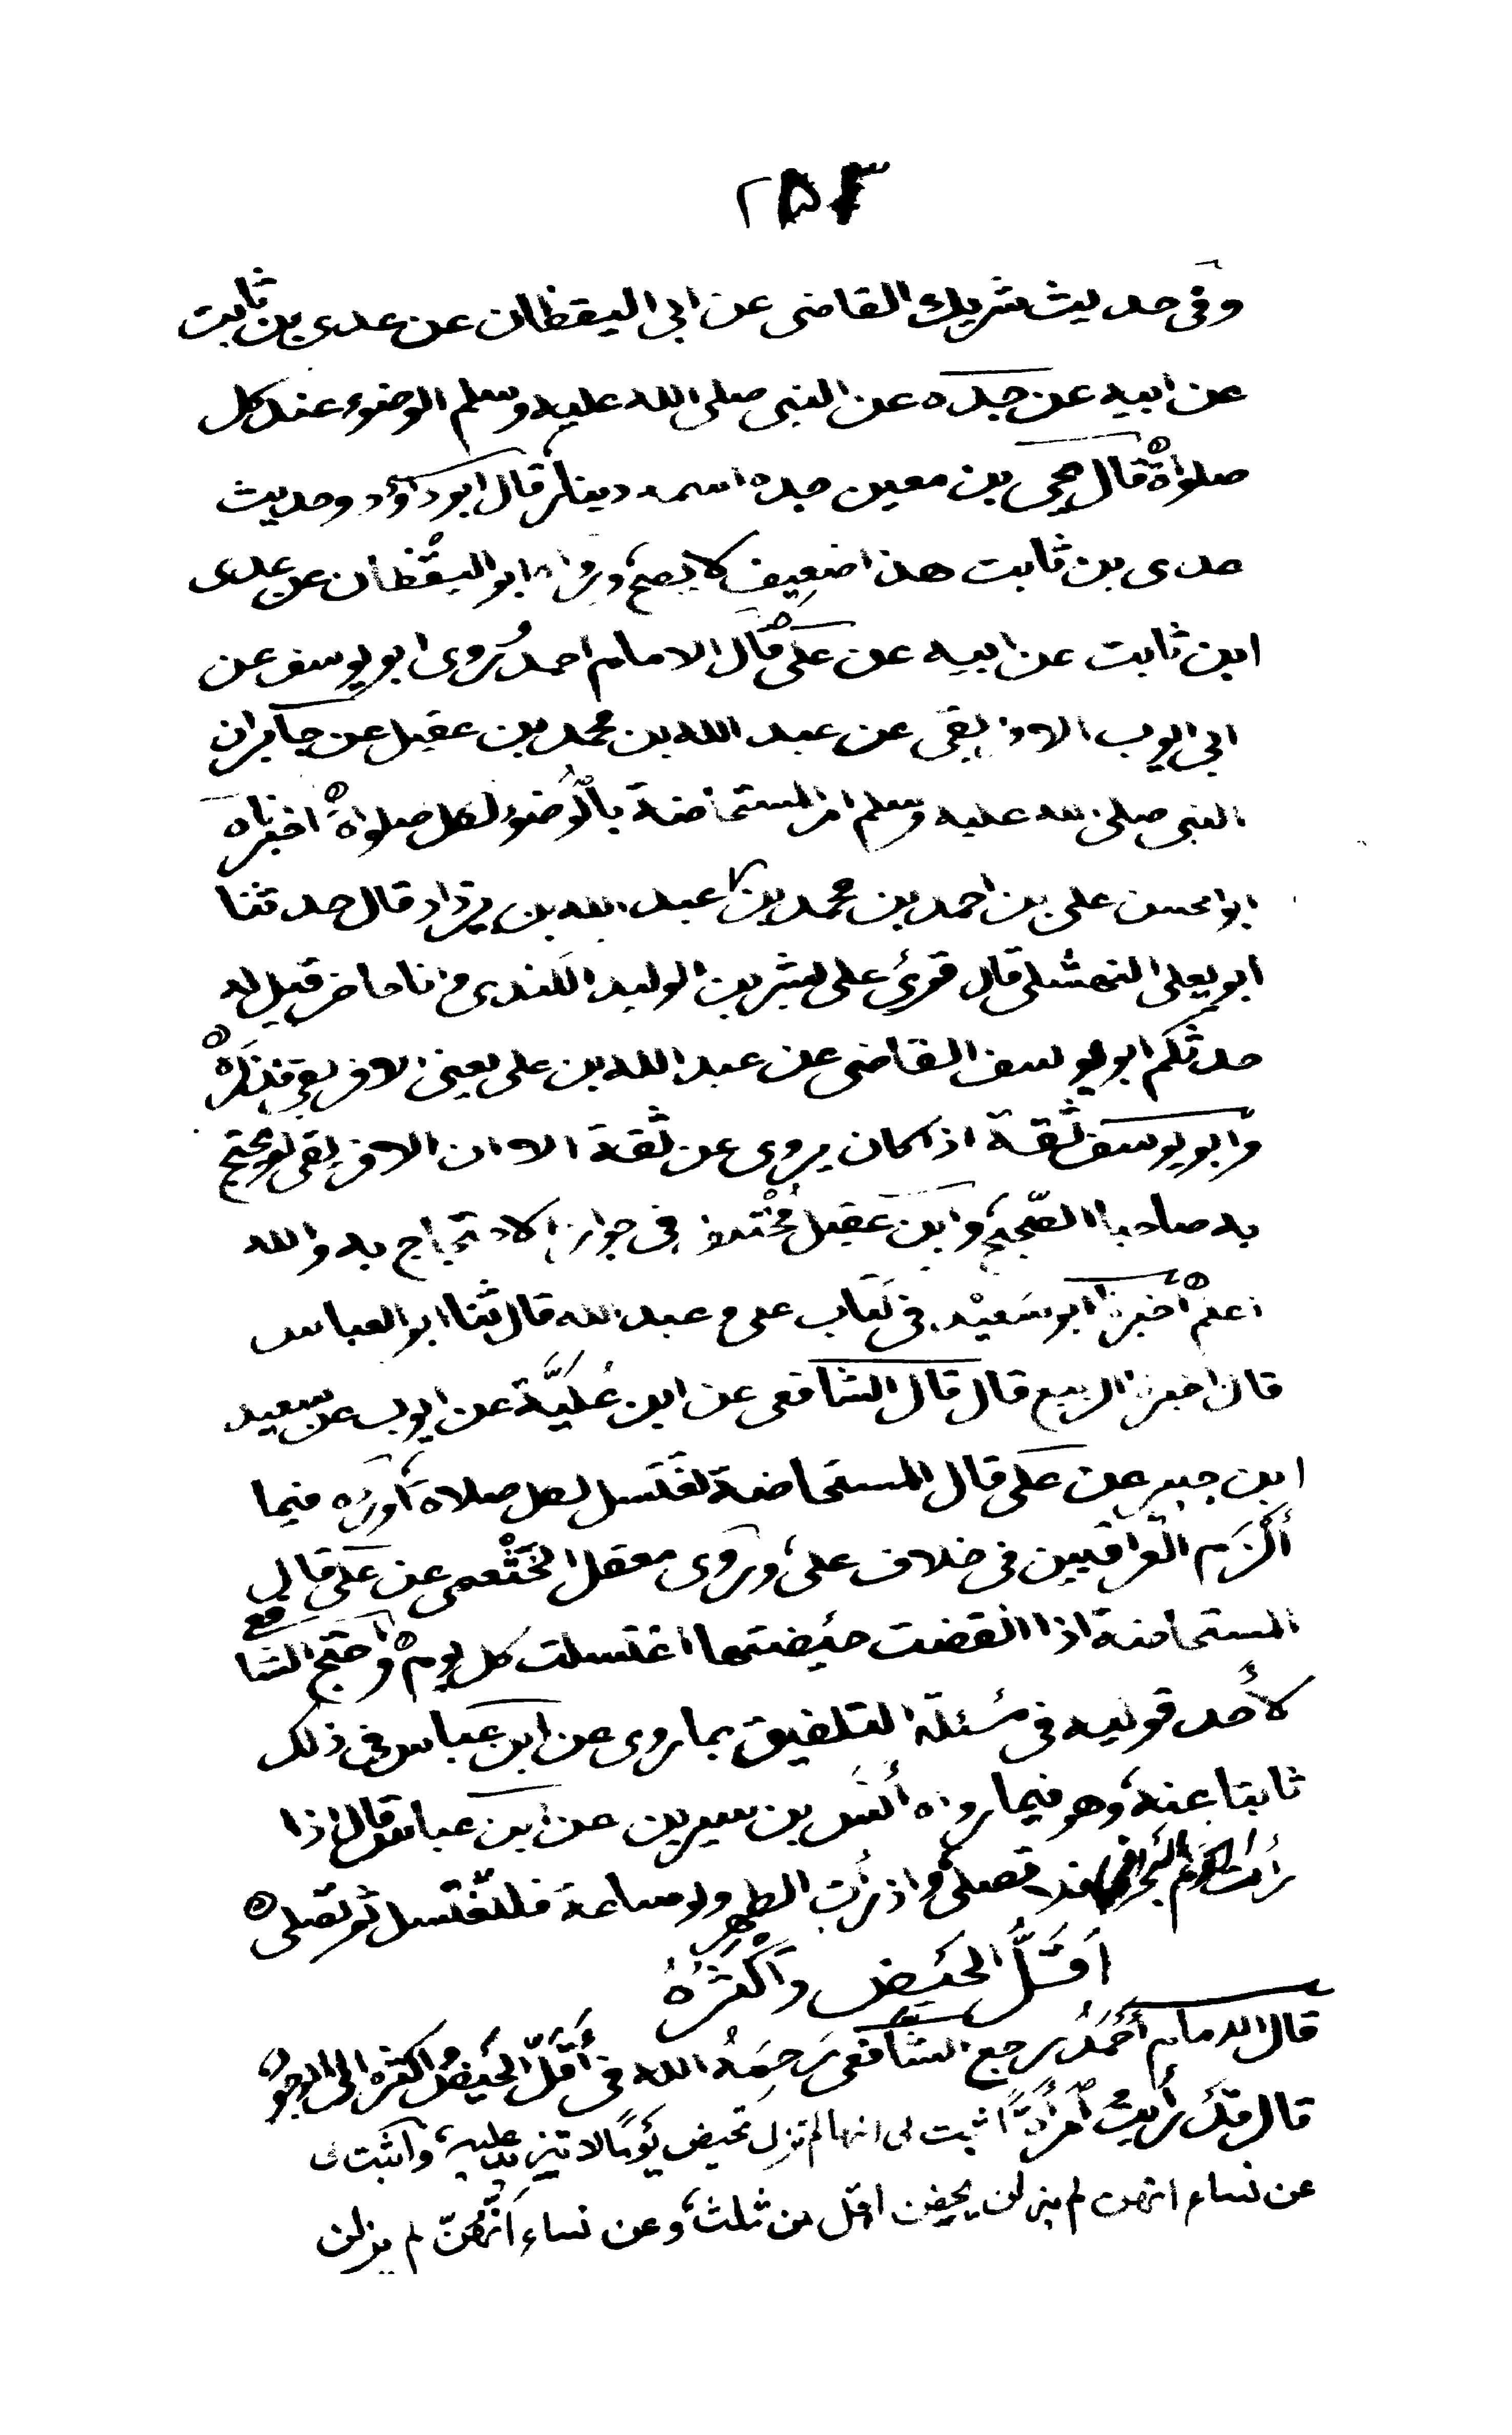 ٢٥٣
وفى حديث شريك القاضى عن ابى اليقظان عن عدى بن ثابت
عن ابيه عن جده عن النبى صلى الله عليه وسلم الوضوء عند كل
صلواة قال يحيى بن معين جده اسمه دينار قال ابو داؤد وحديث
عدى بن ثابت هذا ضعيف لا يصح ورواه ابو اليقظان عن عدى
ابن ثابت عن ابيه عن على قال الامام احمد وروى ابو يوسف عن
ابى ايوب الافريقى عن عبد الله بن محمد بن عقيل عن جابر ان
النبى صلى الله عليه وسلم امر المستحاضة بالوضوء لكل صلواة اخبرناه
ابو الحسن على بن احمد بن محمد بن عبد الله بن يزداد قال حدثنا
ابو يعلى النهشلى قال قرئ على بشر بن الوليد الكندى وانا حاضر قيل له
حدثكم ابو يوسف القاضى عن عبد الله بن على يعنى الافريقى فذكره
وابو يوسف ثقة اذا كان يروى عن ثقة الا ان الافريقى لم يحتج
به صاحبا الصحيح وابن عقيل مختلف فى جواز الاحتجاج به والله
اعلم اخبرنا ابو سعيد فى كتاب على وعبد الله قال ثنا ابو العباس
قال اخبرنا الربيع قال قال الشافعى عن ابن علية عن ايوب عن سعيد
ابن جبير عن على قال المستحاضة تغتسل لكل صلاة اورده فيما
ألزم العراقيين فى خلاف على وروى معقل الخثعمى عن على قال
المستحاضة اذا انقضت حيضتها اغتسلت كل يوم واحتج الشافعى
لأحد قوليه فى مسئلة التلفيق بما روى عن ابن عباس فى ذلك
ثابتا عنه وهو فيما رواه أنس بن سيرين عن ابن عباس قال اذا
رأت الدم البحرانى فلا تصلى واذا رأت الطهر ولو ساعة فلتغتسل ثم تصلى
اَقَلُّ الحَيض وَاَكْثَرُهُ
قال الامام أحمد رجع الشافعى رَحِمَهُ الله فى أقل الحيض واكثره الى الوجود
قال قد رأيت امرأة اثبت لى انها لم تزل تحيض يوما لا تزيد عليه واثبت لى
عن نساء انهن لم يزلن يحضن اقل من ثلث وعن نساء أنهن لم يزلن